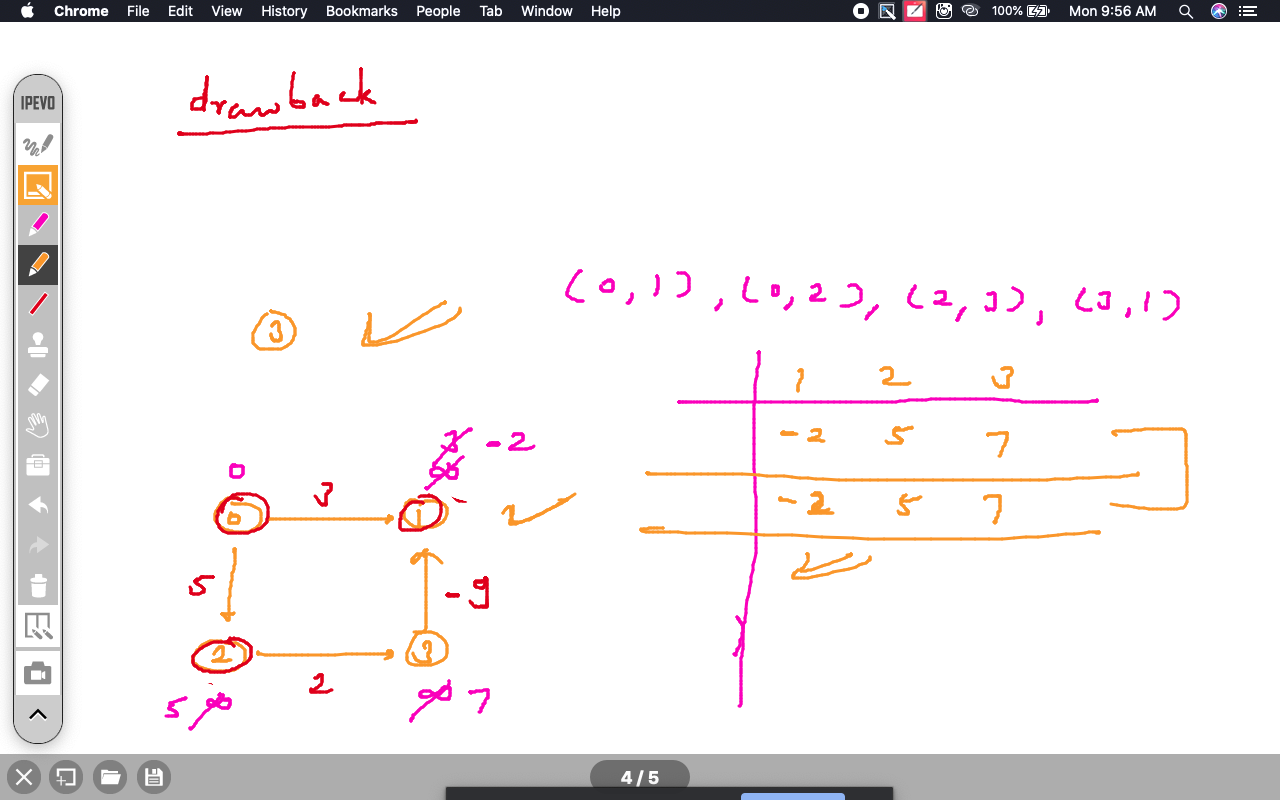 Chrome File Edit View History Bookmarks People Tab Window Help 100% Mon 9:56 AM
IPEVO
drawback
(0,1), (0,2), (2,3), (3,1)
3
1 2 3
-2 5 7
-2 5 7
3 -2
0 ∞
3
0 1
5 -9
2 3
2
5 ∞ ∞ 7
4 / 5